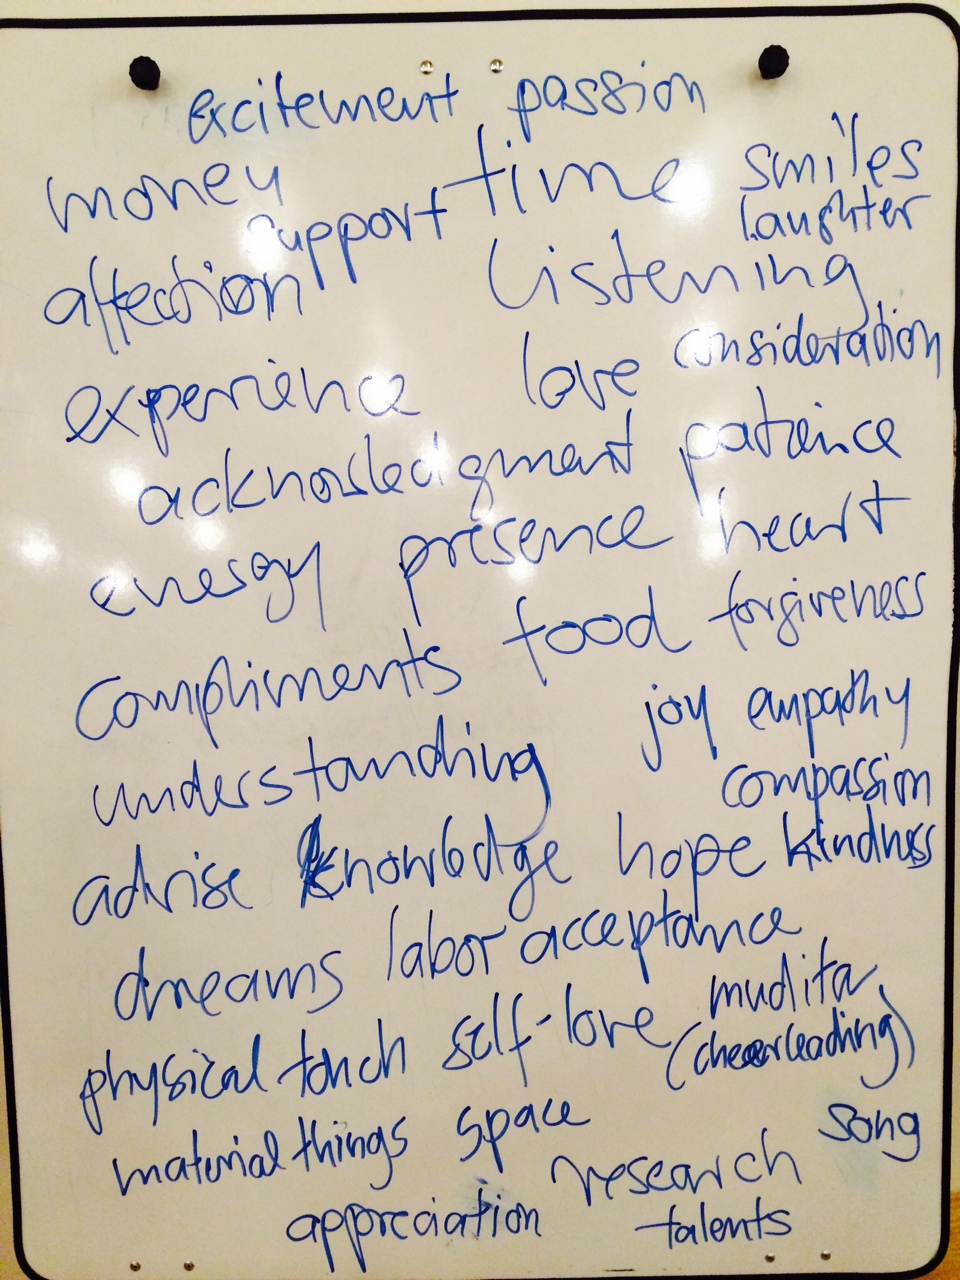 excitement passion
money time smiles
support laughter
affection Listening
experience love consideration
acknowledgment patience
energy presence heart
compliments food forgiveness
understanding joy empathy
compassion
advise knowledge hope kindness
dreams labor acceptance
physical touch self-love mudita
(cheerleading)
material things space song
research
appreciation talents